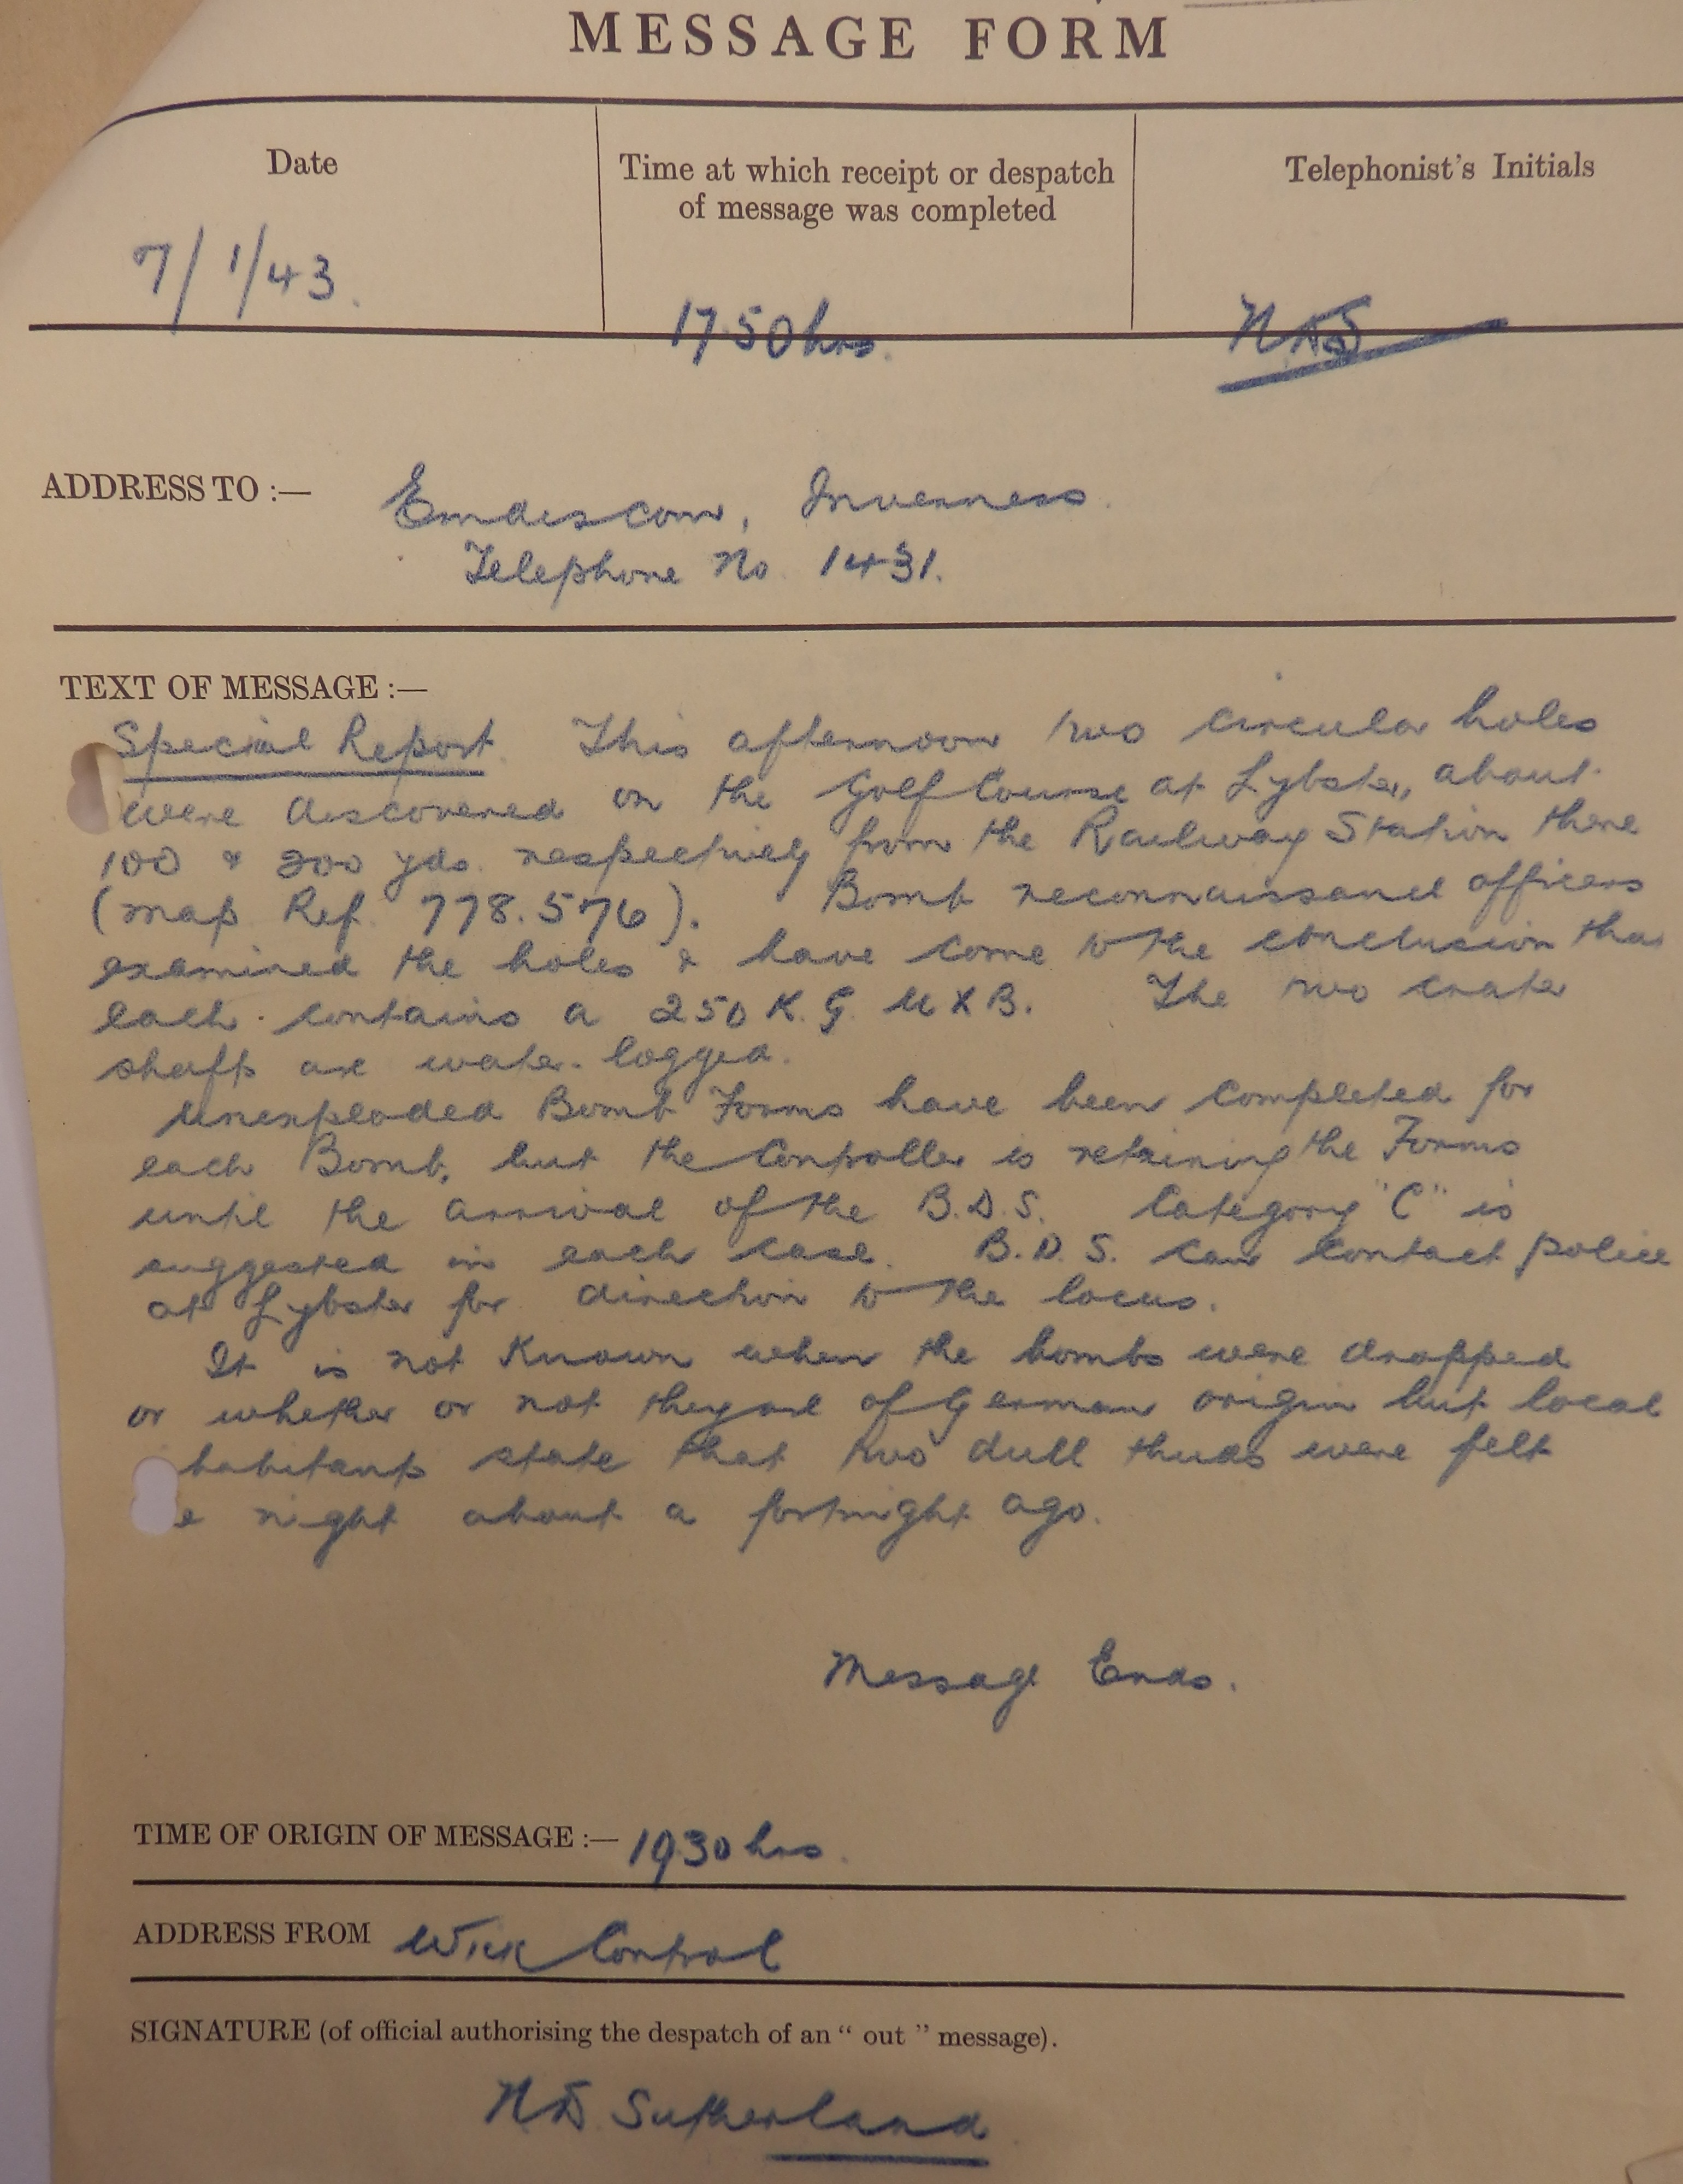 MESSAGE FORM
Date
Time at which receipt or despatch
of message was completed
Telephonist's Initials
7/1/43.
1750 hrs.
NDS
ADDRESS TO :—
Emdiscom, Inverness.
Telephone No 1431.
TEXT OF MESSAGE :—
Special Report. This afternoon two circular holes
were discovered on the Golf Course at Lybster, about
100 & 200 yds. respectively from the Railway Station there
(map Ref. 778.576). Bomb reconnaissance officers
examined the holes & have come to the conclusion tha
each contains a 250 K.G. UXB. The two crater
shafts are water-logged.
Unexploded Bomb Forms have been completed for
each Bomb, but the Controller is retaining the Forms
until the arrival of the B.D.S. Category "C" is
suggested in each case. B.D.S. can contact police
at Lybster for direction to the locus.
It is not known when the bombs were dropped
or whether or not they are of German origin but local
habitants state that two dull thuds were felt
e night about a fortnight ago.
Message Ends.
TIME OF ORIGIN OF MESSAGE :— 1930 hrs.
ADDRESS FROM Wick Control
SIGNATURE (of official authorising the despatch of an " out " message).
ND Sutherland